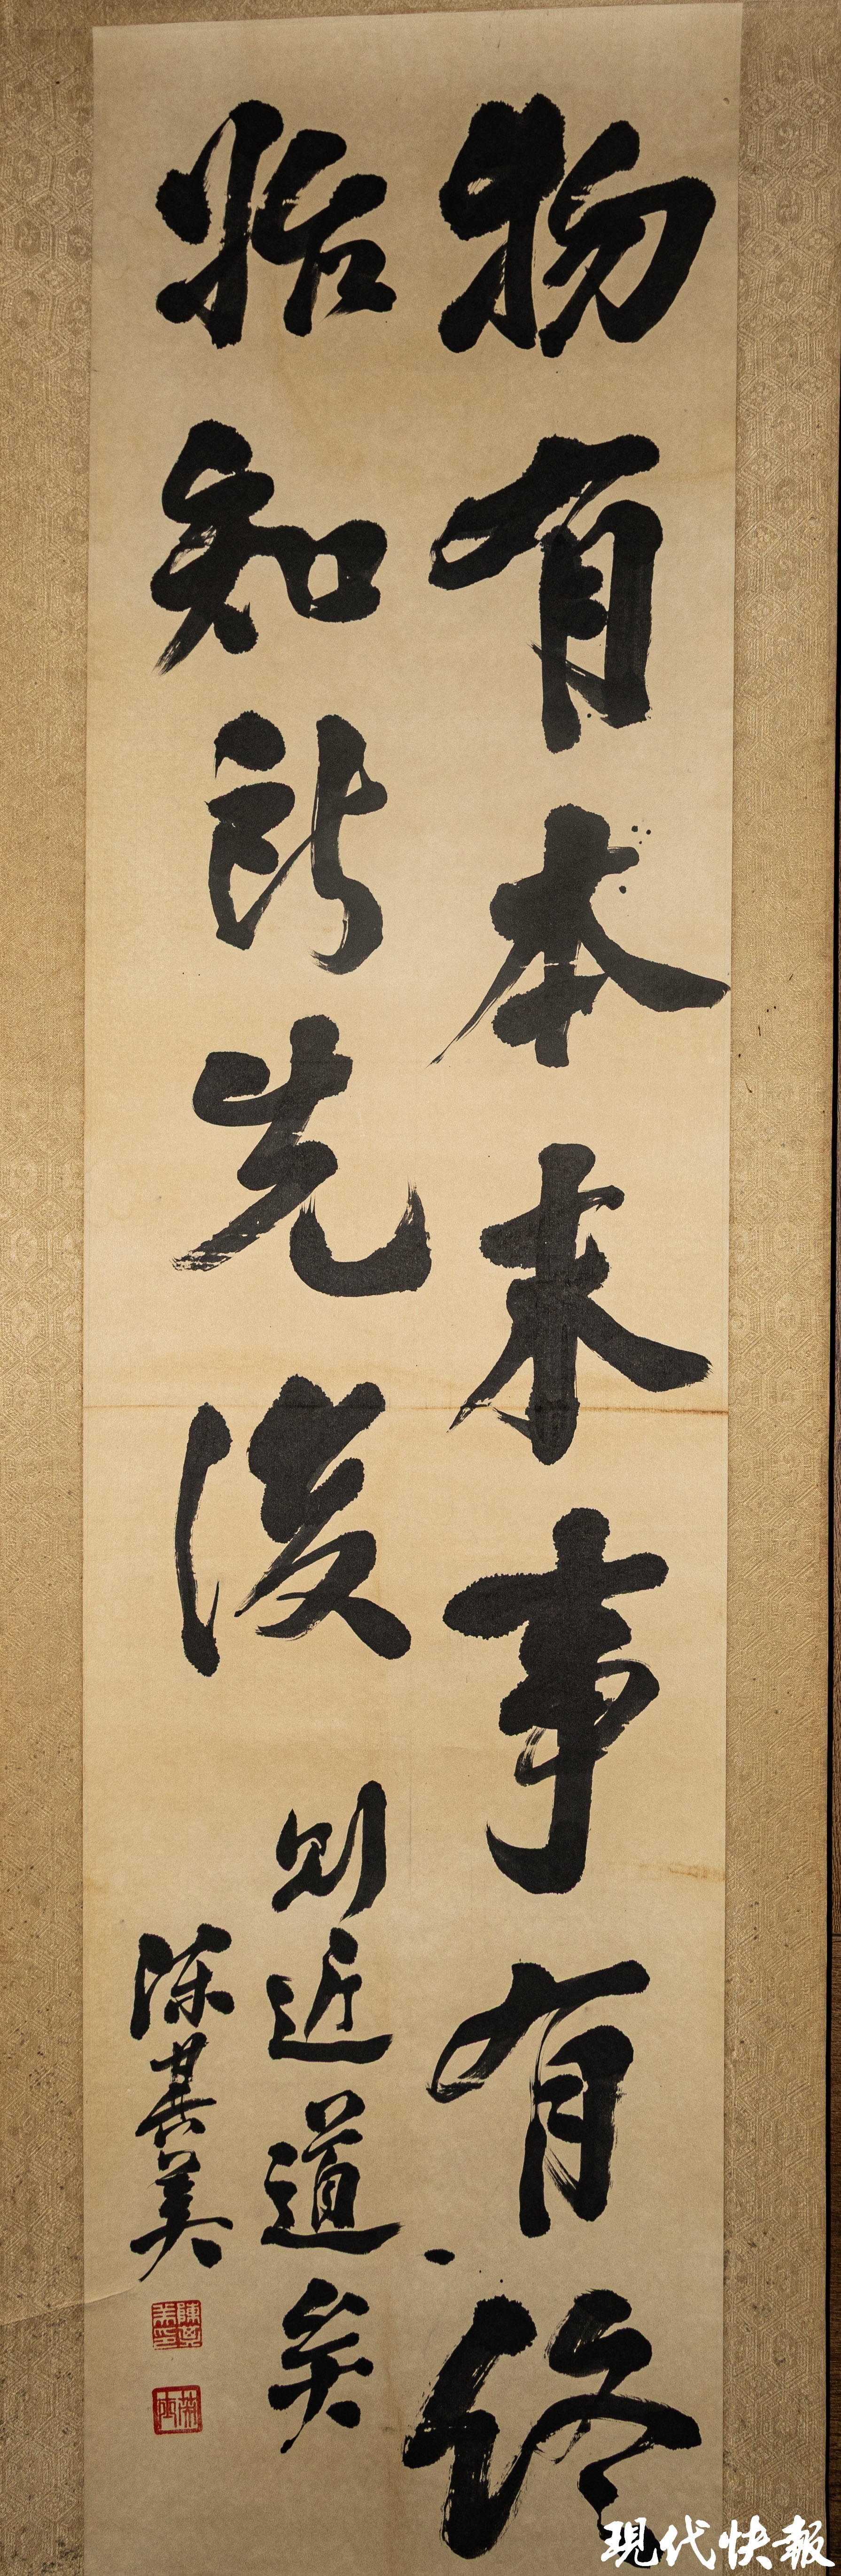 物有本末事有終
始知所先後
則近道矣
陳其美
陳其美印
英士
現代快報